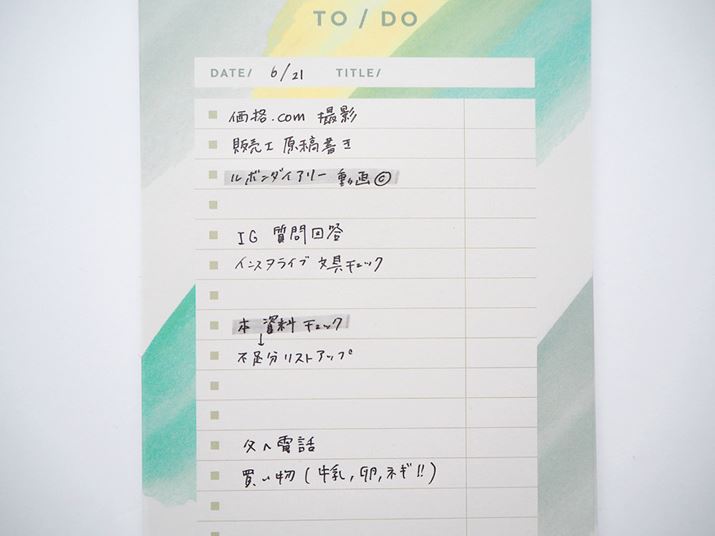 TO / DO
DATE/ 6/21 TITLE/
価格.com 撮影
販売士 原稿書き
ルボンダイアリー 動画©
IG 質問回答
インスタライブ 文具チェック
本 資料チェック
↓
不足分リストアップ
父へ電話
買い物 (牛乳, 卵, ネギ!!)